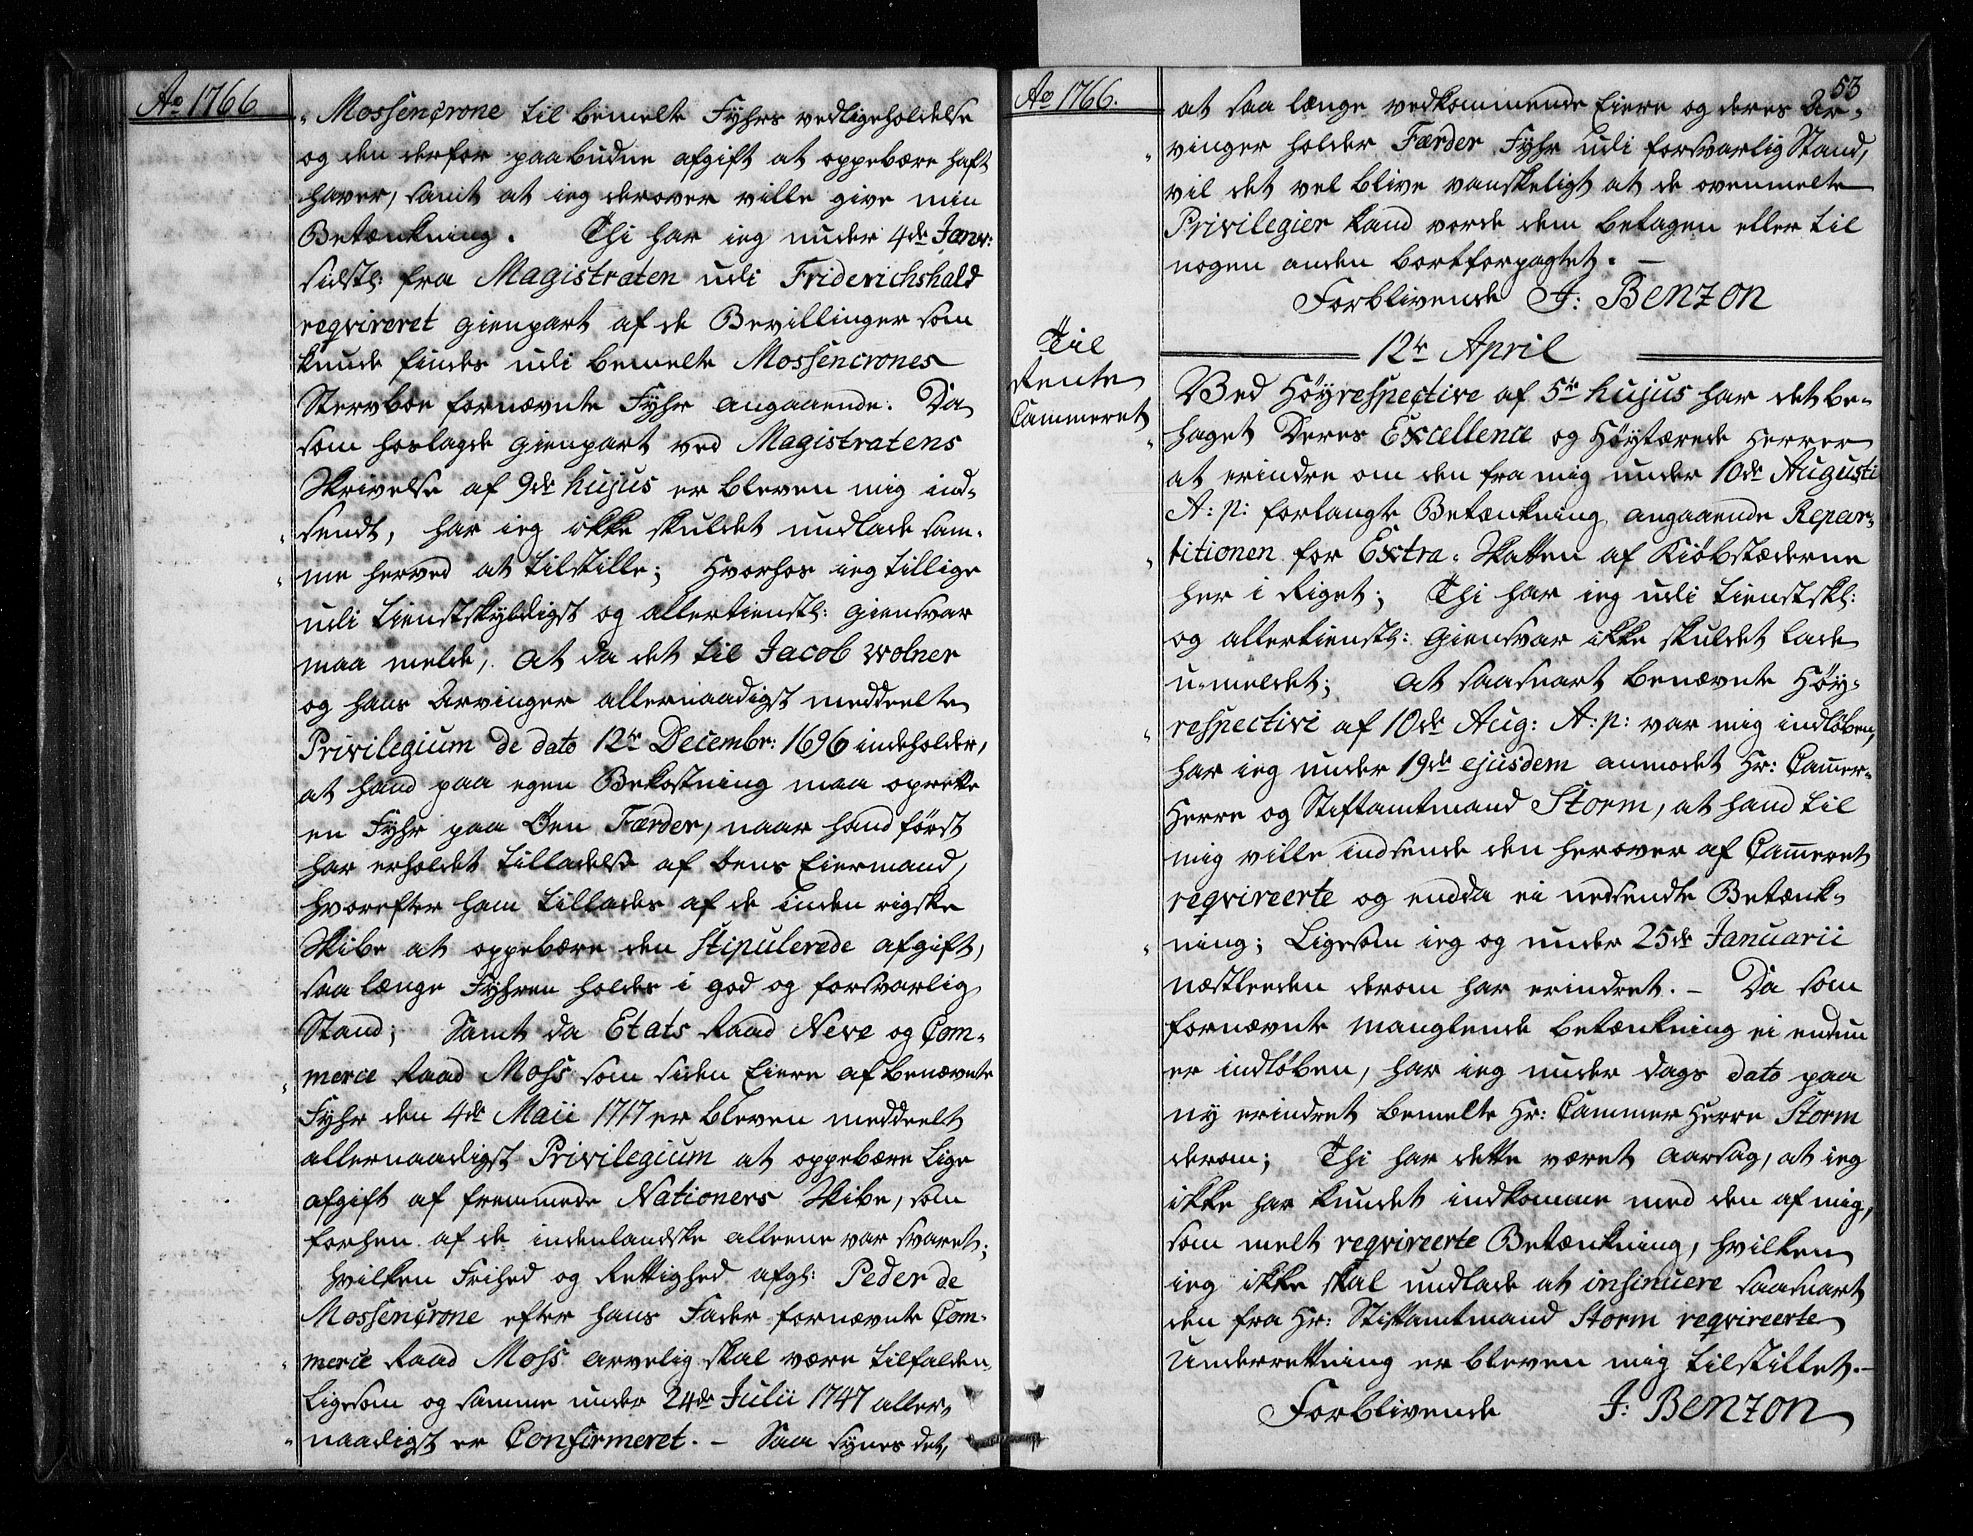 Ao 1766
Mossencrone til bemelte Fyhrs vedligeholdelse
og den derfor paabudne afgift at oppebære haft
haver, samt at ieg derover ville give min
Betænkning. Thi har ieg under 4de Janv:
sidstl: fra Magistraten udi Friderichshald
reqvireret gienpart af de Bevillinger som
kunde findes udi bemelte Mossencrones
Stervboe fornævnte Fyhr angaaende. Da
som hoslagde gienpart ved Magistratens
Skrivelse af 9de hujus er bleven mig ind-
sendt, har ieg ikke skuldet undlade sam-
me herved at tilstille; Hvorhos ieg tillige
udi tienstskyldigst og allertienstl: giensvar
maa melde, at da det til Jacob Wolner
og hans Arvinger allernaadigst meddeelte
Privilegium de dato 12te Decembr: 1696 indeholder,
at hand paa egen Bekostning maa oprette
en Fyhr paa Øen Færder, naar hand først
har erholdet tilladelse af dens Eiermand,
hvorefter ham tillades af de inden rigske
Skibe at oppebære den stipulerede afgift,
saa længe Fyhren holdes i god og forsvarlig
Stand; Samt da Etats Raad Neve og Com-
merce Raad Moss som siden Eiere af benævnte
Fyhr den 4de Maii 1717 er bleven meddeelt
allernaadigst Privilegium at oppebære lige
afgift af fremmede Nationers Skibe, som
forhen af de indenlandske alleene var svaret;
hvilken Frihed og Rettighed afgl: Peder de
Mossencrone efter hans Fader fornævnte Com-
merce Raad Moss arvelig skal være tilfalden,
ligesom og samme under 24de Julii 1747 aller-
naadigst er Confirmeret. - Saa synes det,
Ao 1766.
53
at saa længe vedkommende Eiere og deres Ar-
vinger holder Færder Fyhr udi forsvarlig Stand,
vil det vel blive vanskeligt at de ovenmelte
Privilegier kand vorde dem betagen eller til
nogen anden bortforpagtet. -
Forblivende J: Benzon
12te April
Til
Rente
Cammeret
Ved Høyrespective af 5te hujus har det be-
haget Deres Excellence og Høytærede Herrer
at erindre om den fra mig under 10de Augusti
A: p: forlangte Betænkning angaaende Repar-
titionen for Extra-Skatten af Kiøbstæderne
her i Riget; Thi har ieg udi tienstskl:
og allertienstl: giensvar ikke skuldet lade
u-meldet; at saasnart benævnte Høy-
respectivi af 10de Aug: A: p: var mig indløben,
har ieg under 19de ejusdem anmodet Hr: Cammer-
Herre og Stiftamtmand Storm, at hand til
mig ville indsende den herover af Cammeret
reqvireerte og endda ei nedsendte Betænk-
ning; Ligesom ieg og under 25de Januarii
næstleeden derom har erindret. - Da som
fornævnte manglende betænkning ei endnu
er indløben, har ieg under dags dato paa
ny erindret bemelte Hr: Cammer Herre Storm
derom; Thi har dette været aarsag, at ieg
ikke har kundet indkomme med den af mig,
som melt reqvireerte Betænkning, hvilken
ieg ikke skal undlade at insinuere saasnart
den fra Hr: Stiftamtmand Storm reqvireerte
Underretning er bleven mig tilstillet. -
Forblivende J: Benzon